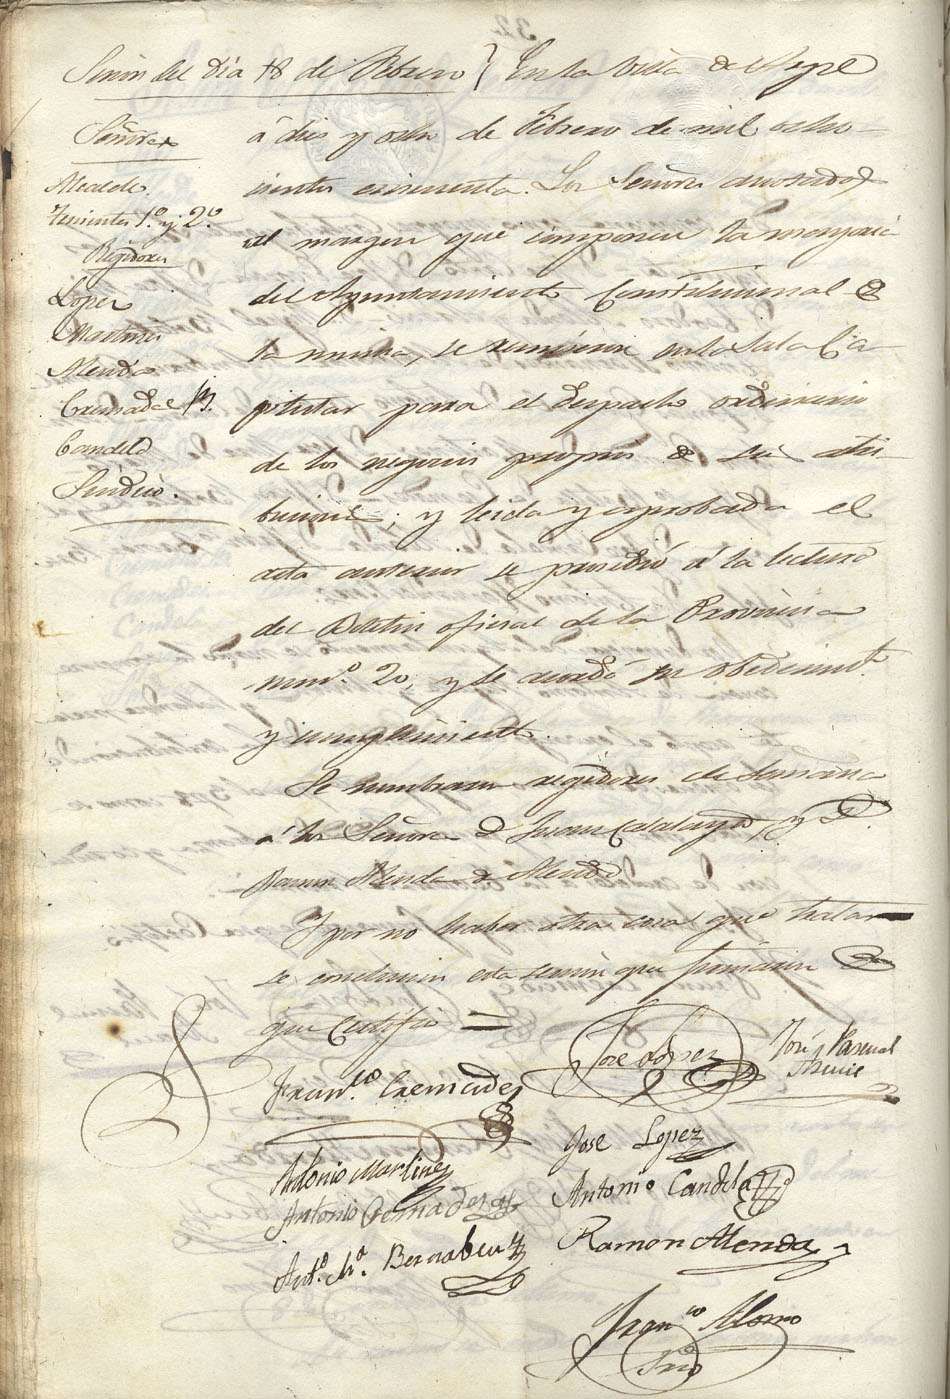 Sesion del dia 18 de Febrero } En la Villa de Aspe
Señores
Alcalde
Tenientes 1º. y 2º.
Regidores
Lopez
Martinez
Alenda
Cremades M.
Candela
Sindico.
á diez y ocho de Febrero de mil ocho-
cientos cincuenta. Los Señores anotados
al margen que componen la mayoria
del Ayuntamiento Constitucional de
la misma, se reunieron en la Sala Ca-
pitular para el despacho ordinario
de los negocios propios de sus atri-
buciones; y leida y aprobada el
acta anterior se procedió á la lectura
del Boletin oficial de la Provincia
num.º 20, y se acordó su obedecimto.
y cumplimiento.
Se nombraron regidores de Semana
á los Señores D. Juan Calatayud, y D.
Ramon Alenda de Alenda
Y por no haber otra cosa que tratar
se concluyó esta sesion que firmaron de
que Certifico =
Franco. Cremades
Jose Lopez
José Pascual
Antonio Martinez
Jose Lopez
Antonio Cremades
Antonio Candela
Anto. Ma. Bernabeu
Ramon Alenda
Franco Alonso
Srio